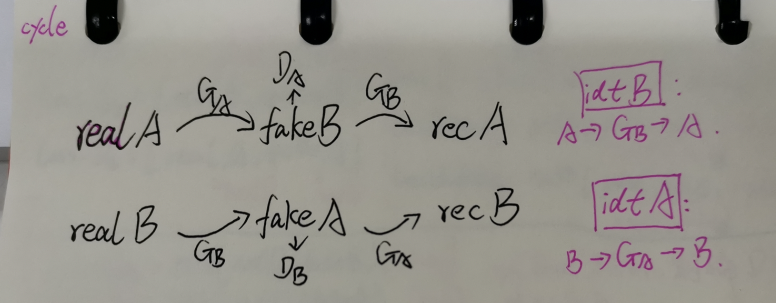 cycle
D_A
real A G_A → fake B G_B → rec A
idt B :
A → G_B → A .
real B → fake A → rec B
G_B D_B G_A
idt A :
B → G_A → B .